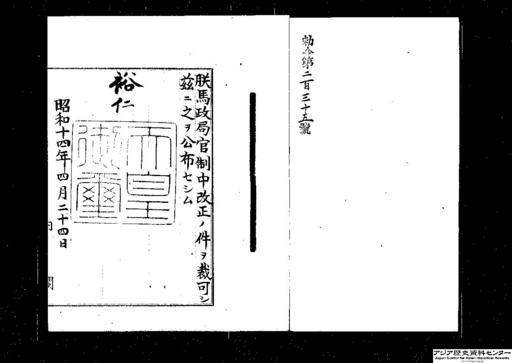 勅令第二百三十五號
朕馬政局官制中改正ノ件ヲ裁可シ
茲ニ之ヲ公布セシム
裕仁
天皇
御璽
昭和十四年四月二十四日
内閣
アジア歴史資料センター
Japan Center for Asian Historical Records